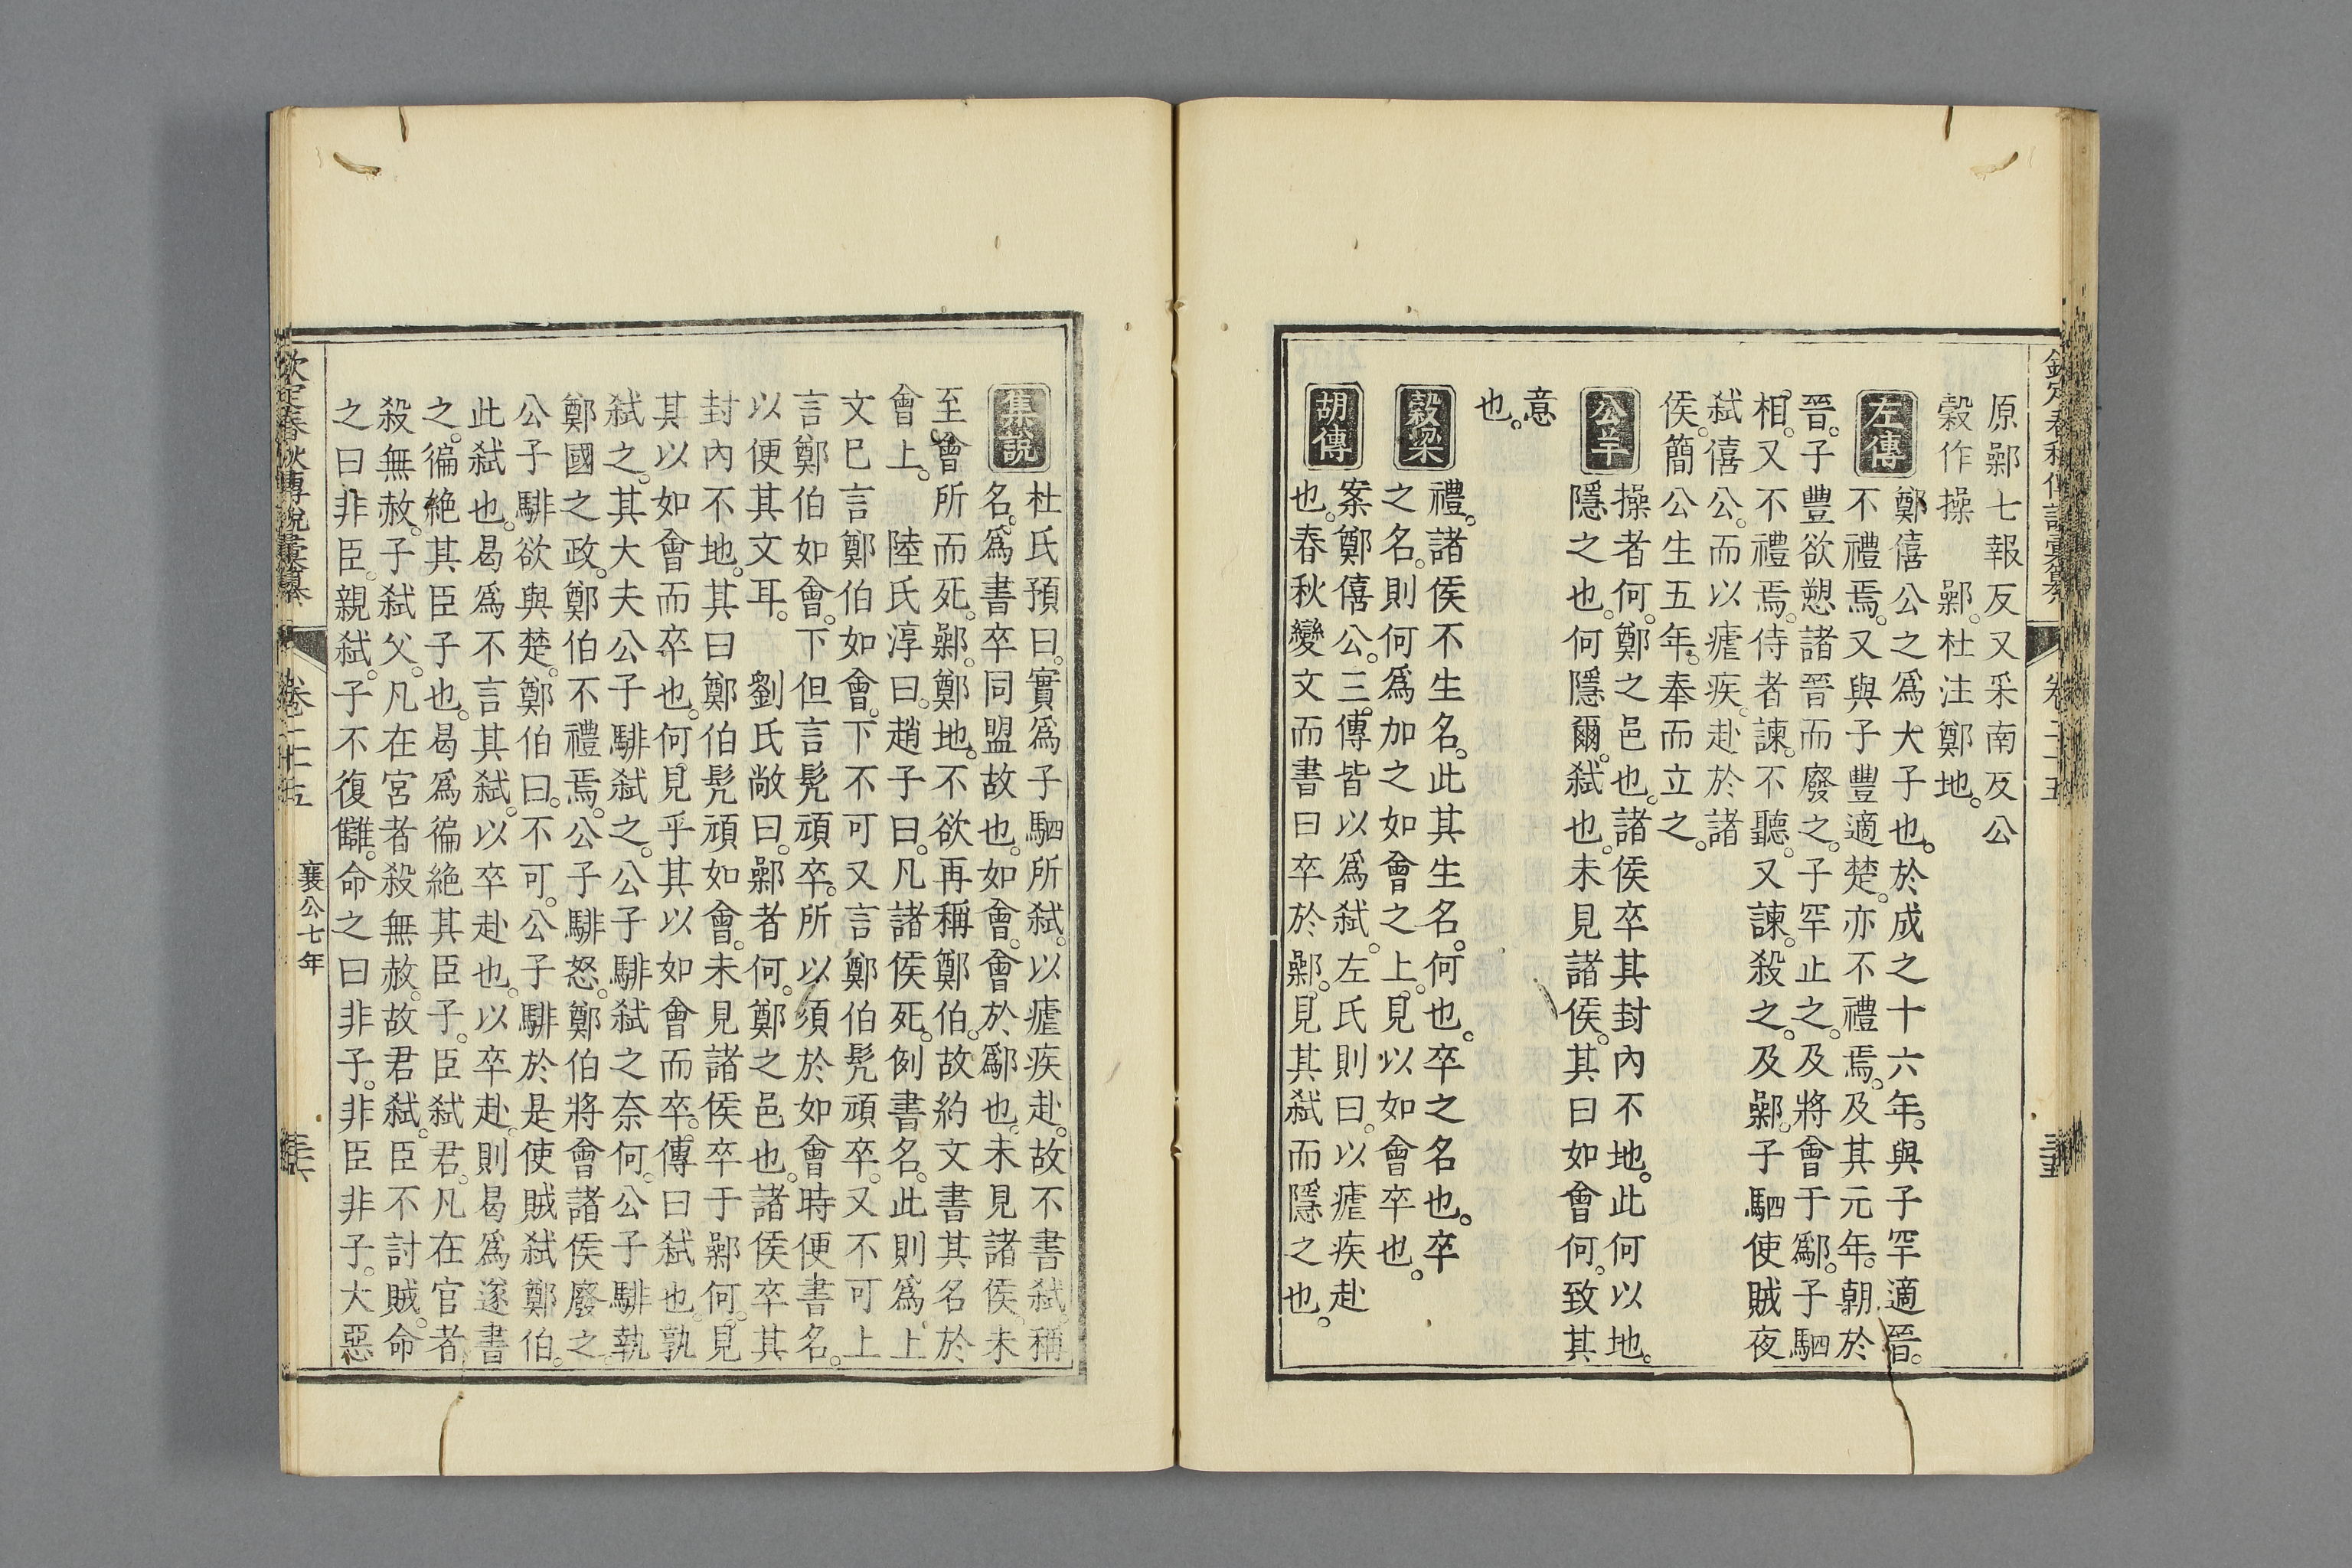 欽定春秋傳說彙纂　卷二十五
原鄵七報反又采南反公
穀作操　鄵。杜注鄭地。
左傳　鄭僖公之爲大子也。於成之十六年。與子罕適晉。
不禮焉。又與子豐適楚。亦不禮焉。及其元年。朝於
晉。子豐欲愬諸晉而廢之。子罕止之。及將會于鄬。子駟
相。又不禮焉。侍者諫。不聽。又諫。殺之。及鄵。子駟使賊夜
弑僖公。而以瘧疾。赴於諸
侯。簡公生五年。奉而立之。
公羊　操者何。鄭之邑也。諸侯卒其封內不地。此何以地。
隱之也。何隱爾。弑也。未見諸侯。其曰如會何。致其
意
也。
穀梁　禮。諸侯不生名。此其生名。何也。卒之名也。卒
之名。則何爲加之如會之上。見以如會卒也。
胡傳　案鄭僖公。三傳皆以爲弑。左氏則曰。以瘧疾赴
也。春秋變文而書曰卒於鄵。見其弑而隱之也。
集說　杜氏預曰。實爲子駟所弑。以瘧疾赴。故不書弑。稱
名。爲書卒同盟故也。如會。會於鄬也。未見諸侯。未
至會所而死。鄵。鄭地。不欲再稱鄭伯。故約文書其名於
會上。　陸氏淳曰。趙子曰。凡諸侯死。例書名。此則爲上
文巳言鄭伯如會。下不可又言鄭伯髡頑卒。又不可上
言鄭伯如會。下但言髡頑卒。所以須於如會時便書名。
以便其文耳。　劉氏敞曰。鄵者何。鄭之邑也。諸侯卒其
封內不地。其曰鄭伯髡頑如會。未見諸侯卒于鄵何。見
其以如會而卒也。何見乎其以如會而卒。傳曰弑也。孰
弑之。其大夫公子騑弑之。公子騑弑之奈何。公子騑執
鄭國之政。鄭伯不禮焉。公子騑怒。鄭伯將會諸侯廢之。
公子騑欲與楚。鄭伯曰。不可。公子騑於是使賊弑鄭伯。
此弑也。曷爲不言其弑。以卒赴也。以卒赴。則曷爲遂書
之。徧絶其臣子也。曷爲徧絶其臣子。臣弑君。凡在官者
殺無赦。子弑父。凡在宮者殺無赦。故君弑。臣不討賊。命
之曰非臣。親弑。子不復讎。命之曰非子。非臣非子。大惡
欽定春秋傳說彙纂　卷二十五　襄公七年